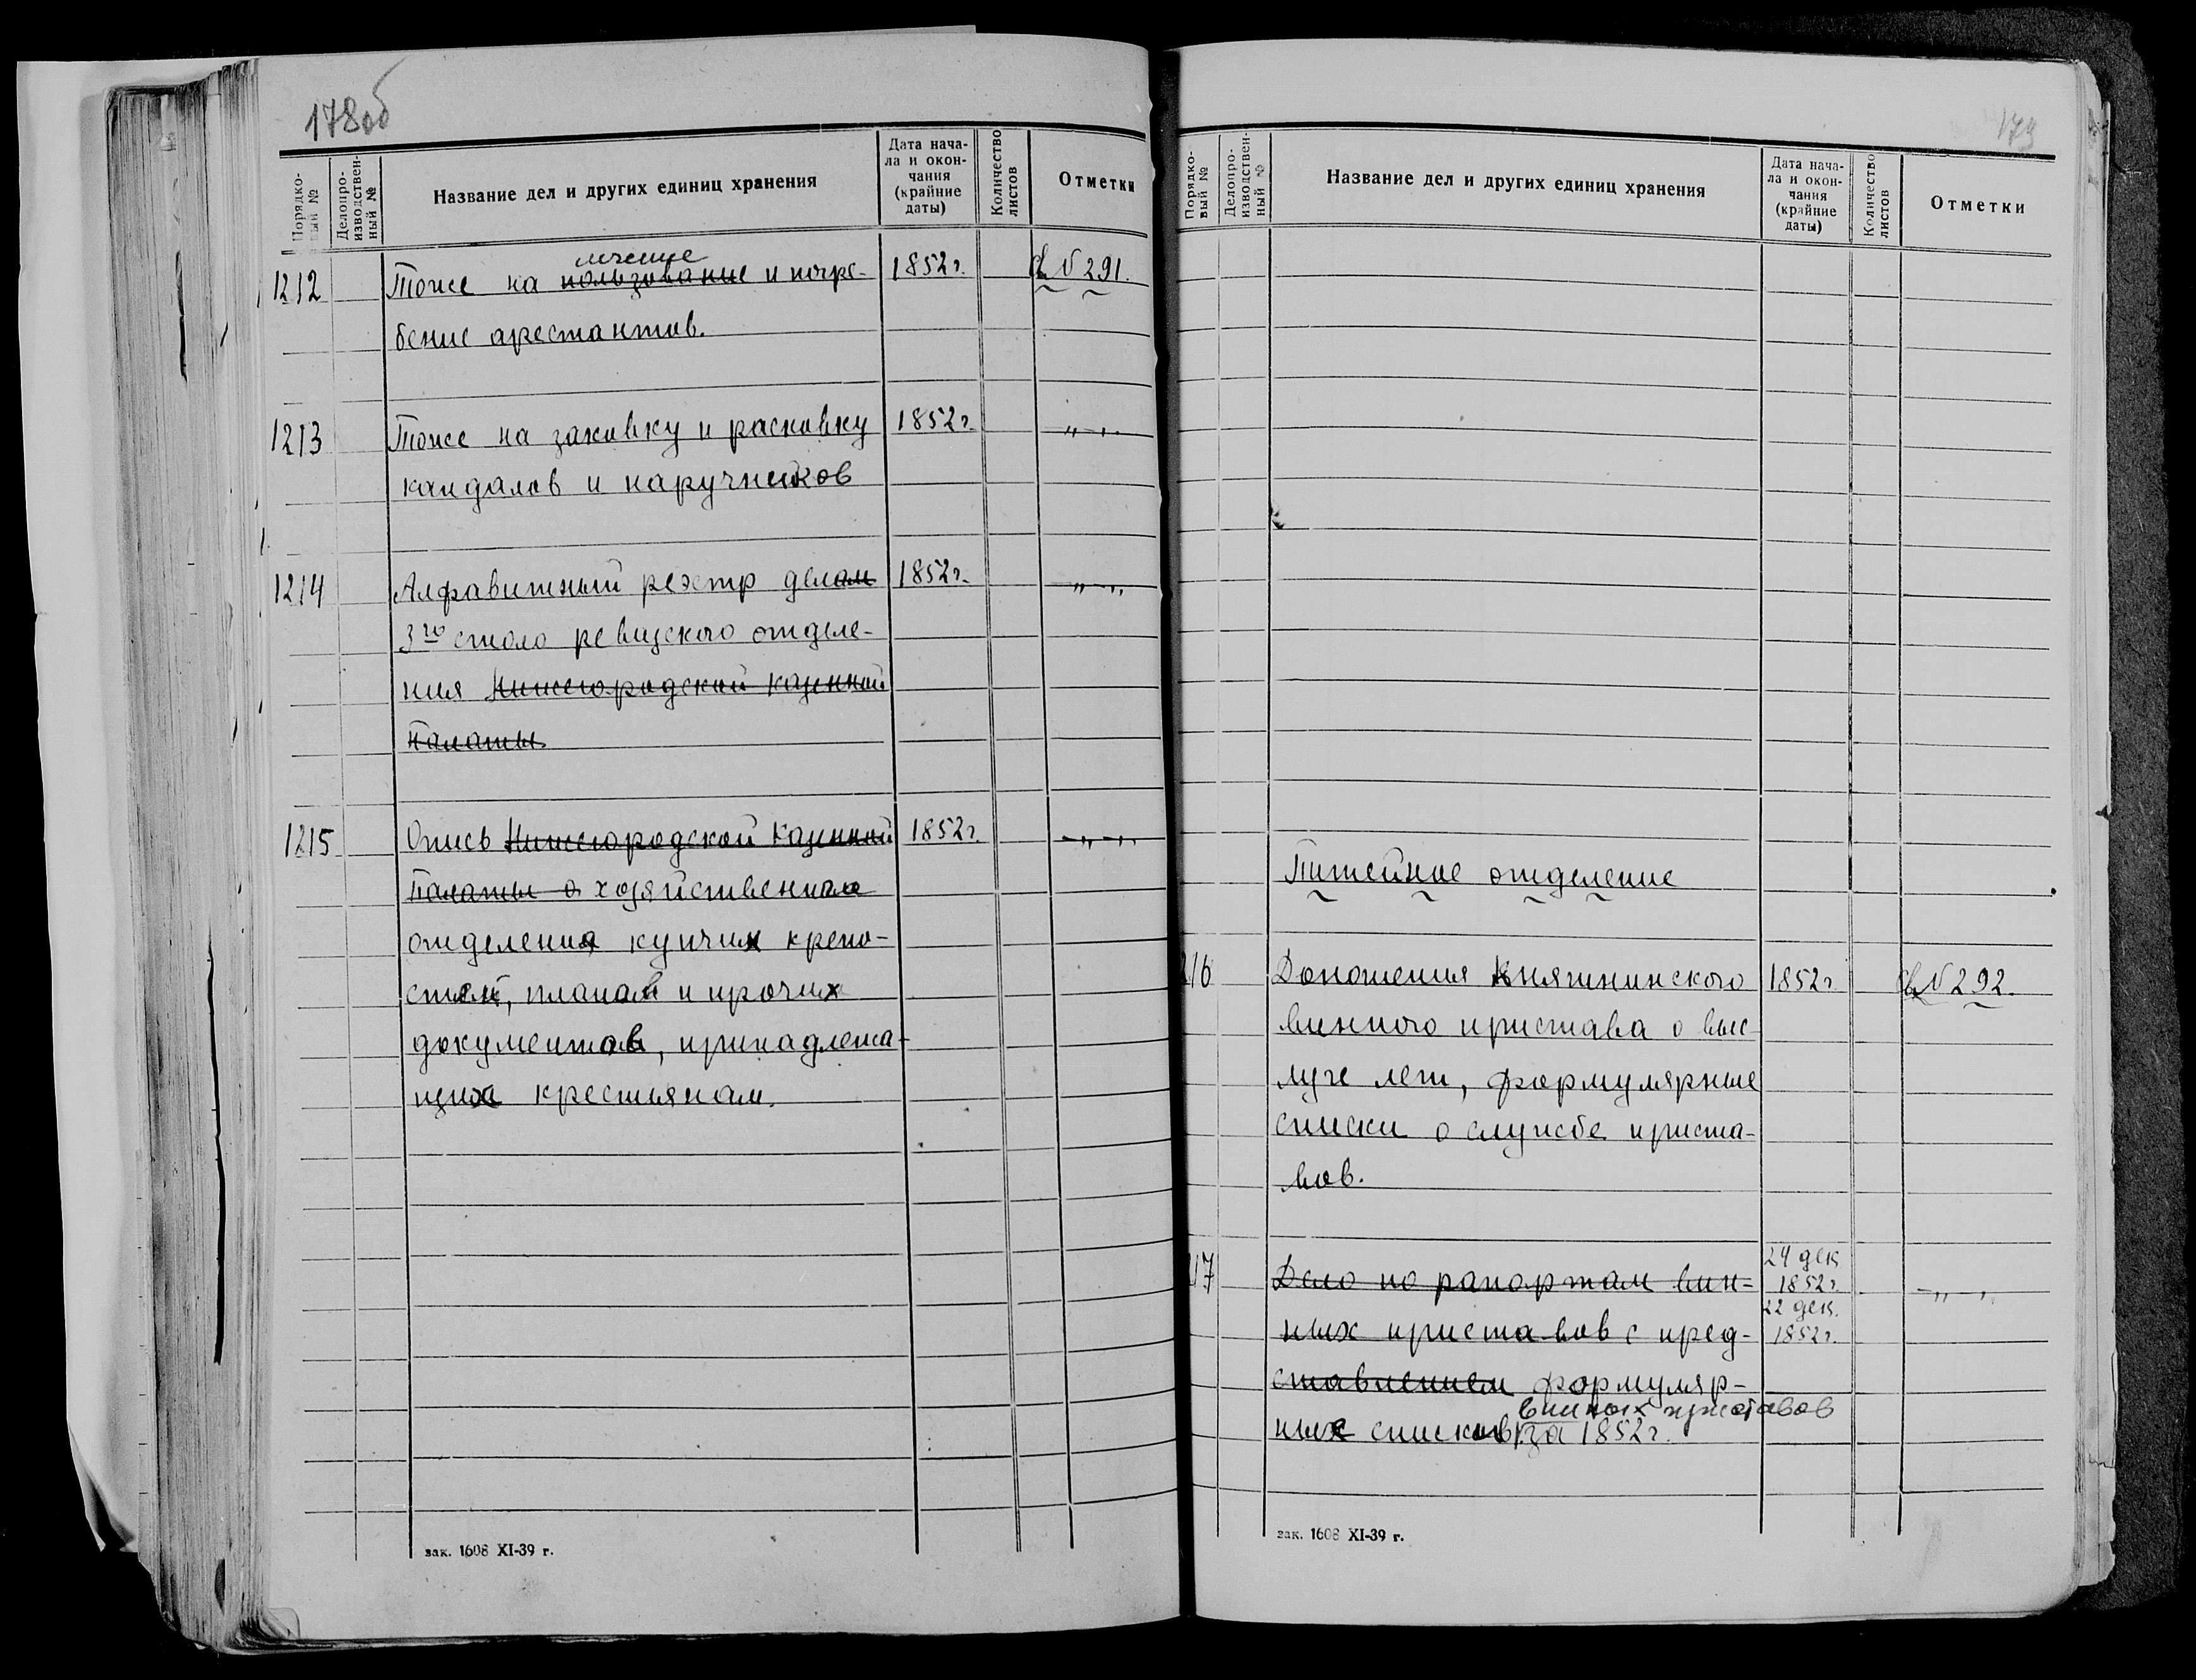 178об
Порядко-
вый №
Делопро-
изводствен-
ный №
Название дел и других единиц хранения
Дата нача-
ла и окон-
чания
(крайние
даты)
Количество
листов
Отметки
лечение
1212 Тоже на пользование и погре- 1852г. св N 291.
бение арестантов.
1213 Тоже на заковку и расковку 1852г. „ „
кандалов и наручников
1214 Алфавитный реэстр делам 1852г. „ „
3го стола ревизского отделе-
ния Нижегородской казенной
Палаты
1215 Опись Нижегородской Казенной 1852г. „ „
Палаты о хозяйственного
отделения купчих крепо-
стей, планов и прочих
документов, принадлежа-
щих крестьянам.
зак. 1608 XI-39 г.
179
Порядко-
вый №
Делопро-
изводствен-
ный №
Название дел и других единиц хранения
Дата нача-
ла и окон-
чания
(крайние
даты)
Количество
листов
Отметки
Питейное отделение
216 Доношения Княгининского 1852г. св N 292.
винного пристава о выс-
луге лет, формулярные
списки о службе приста-
вов.
24 дек
217 Дело по рапортам вин- 1852г. „ „
22 дек.
ных приставов с пред- 1852г.
ставлением формуляр-
винных приставов
ных списков за 1852г.
зак. 1608 XI-39 г.